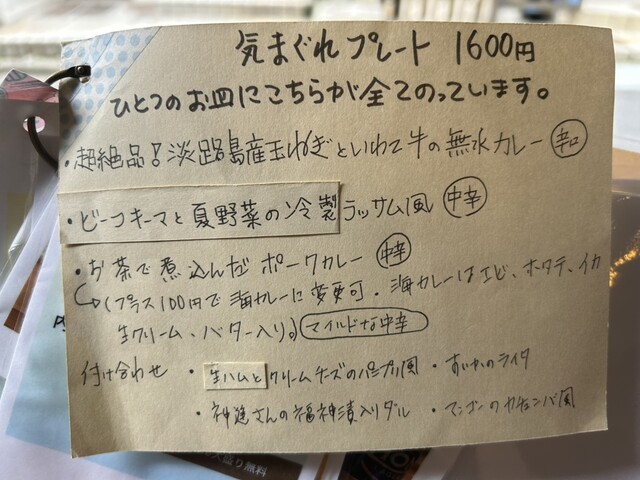 気まぐれプレート 1600円
ひとつのお皿にこちらが全てのっています。
・超絶品!淡路島産玉ねぎといわて牛の無水カレー 辛口
・ビーフキーマと夏野菜の冷製ラッサム風 中辛
・お茶で煮込んだポークカレー 中辛
(プラス100円で海カレーに変更可・海カレーはエビ、ホタテ、イカ
生クリーム、バター入り。) マイルドな中辛
付け合わせ ・生ハムとクリームチーズのパニプリ風 ・すいかのライタ
・神進さんの福神漬入りダル ・マンゴーのカチュンバ風
盛り無料